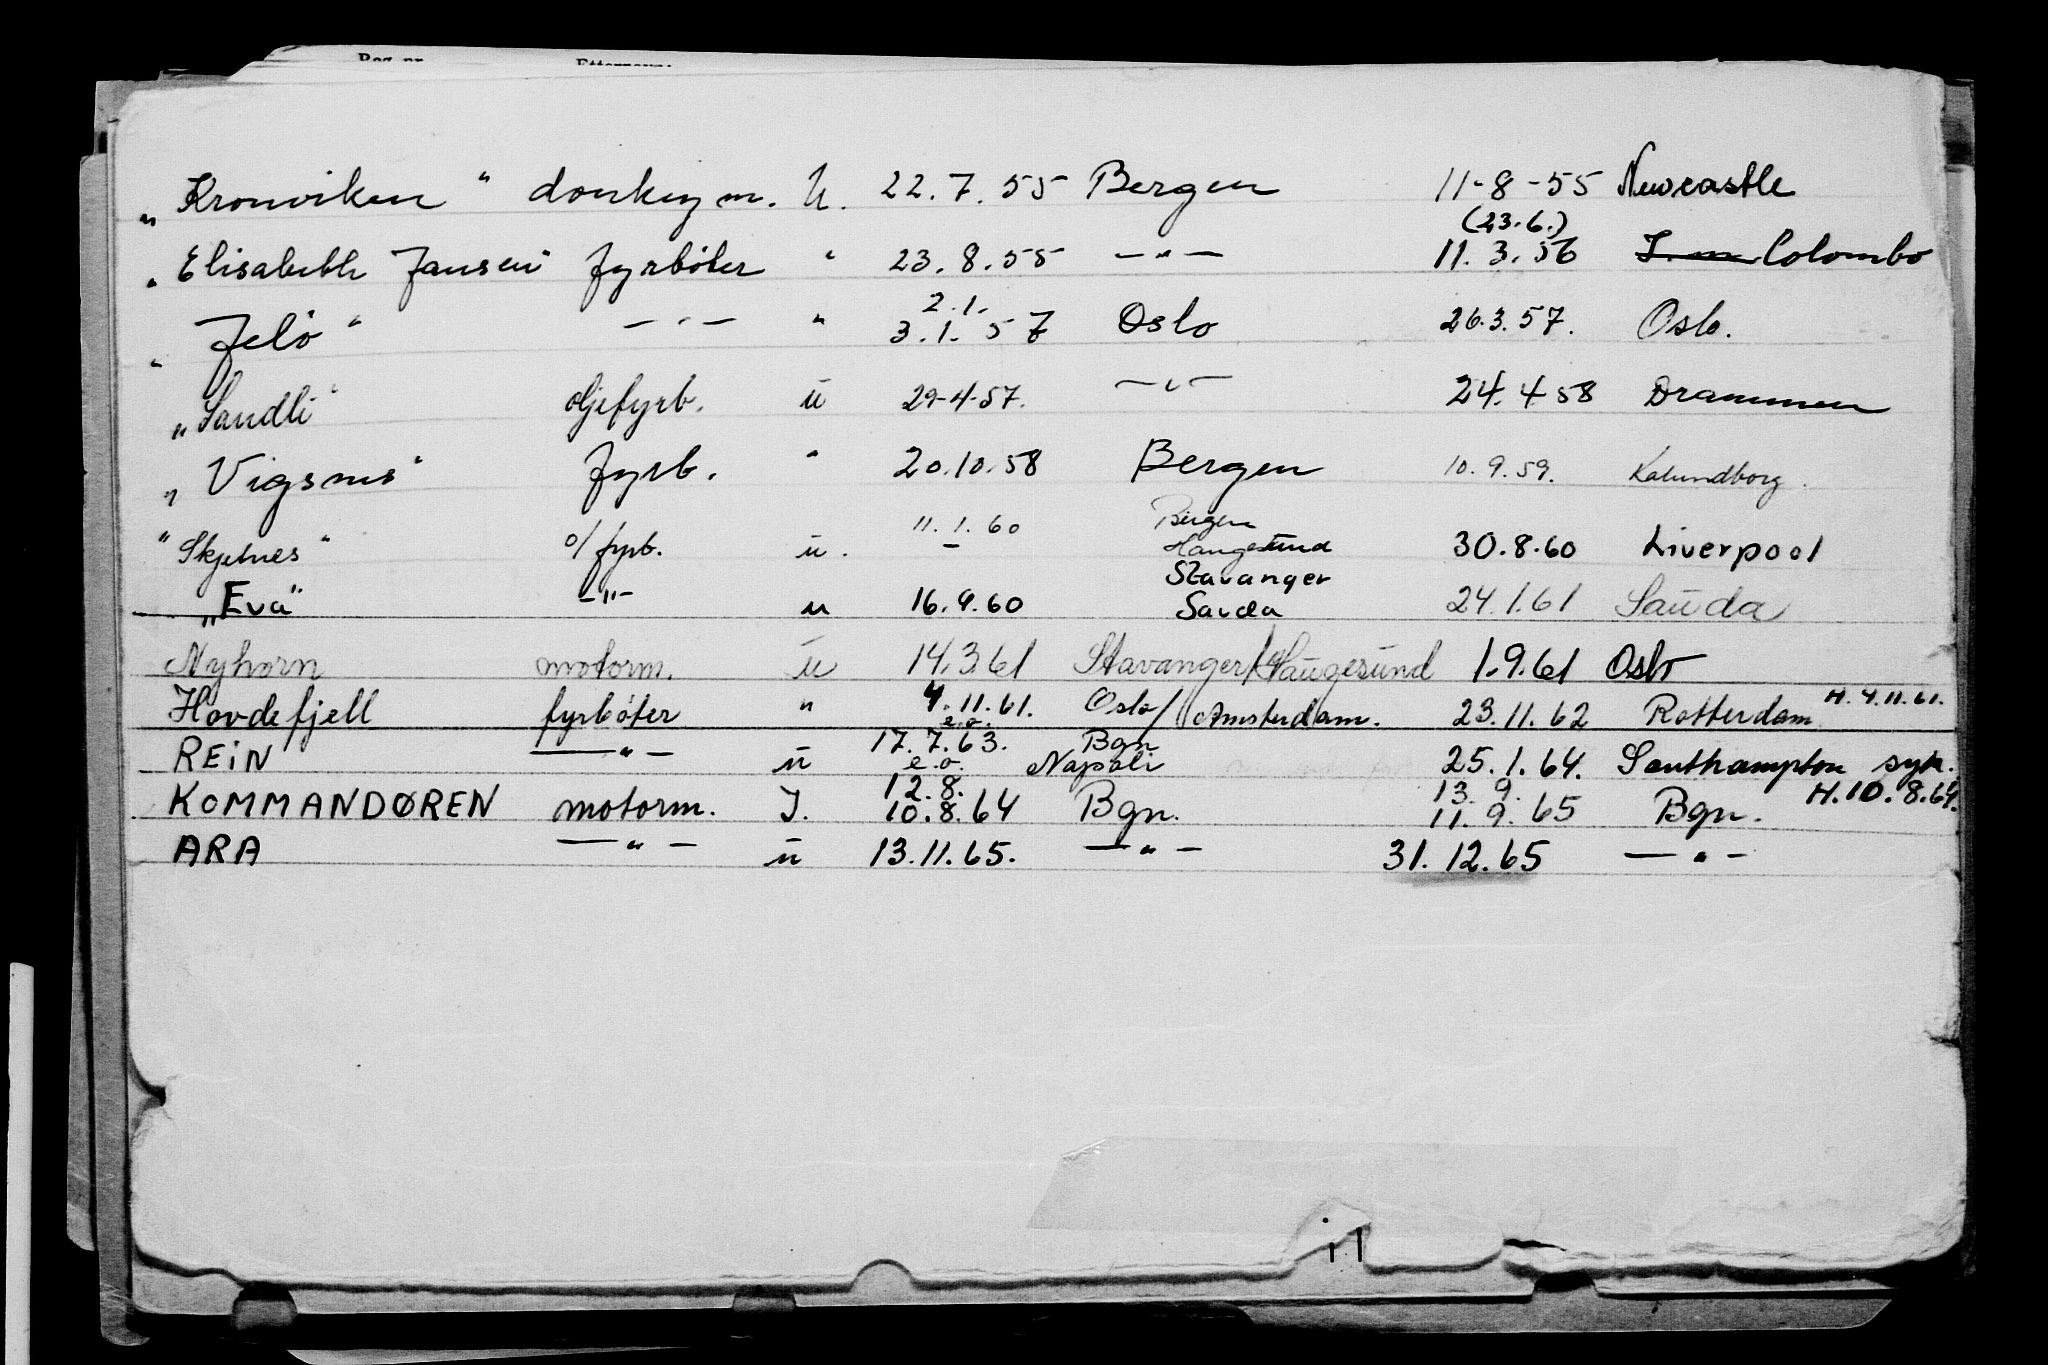 „Kronviken" donkeym. U. 22.7.55 Bergen 11-8-55 Newcastle
(23.6.)
„Elisabeth Jansen" fyrbøter " 23.8.55 —"— 11.3.56 Colombo
2.1.
„Jelö" —"— " 3.1.57 Oslo 26.3.57. Oslo.
„Sandli" oljefyrb. u 29-4-57. —"— 24.4 58 Drammen
„Vigsnes" fyrb. " 20.10.58 Bergen 10.9.59. Kalundborg.
11.1.60 Bergen
"Skjelnes" o/fyrb. u. – Haugesund 30.8.60 Liverpool
Stavanger
„Eva" –"– u 16.9.60 Sauda 24.1.61 Sauda
Nyhorn motorm. u 14.3.61 Stavanger/Haugesund 1.9.61 Oslo
Hovdefjell fyrbøter " 4.11.61. Oslo/Amsterdam. 23.11.62 Rotterdam H.4.11.61.
e.o.
17.7.63. Bgn
REIN —"— u e.o. Napoli 25.1.64. Southampton syk.
12.8. 13.9. H.10.8.64.
KOMMANDØREN motorm. I. 10.8.64 Bgn. 11.9.65 Bgn.
ARA —"— u 13.11.65. —"— 31.12.65 —"—